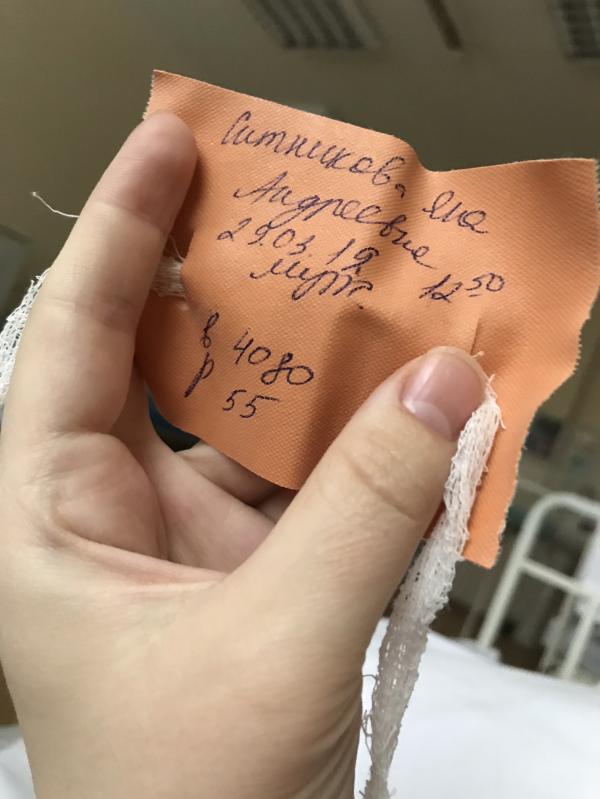 Ситникова Яна
Андреевна
29.03.19 12 50
муж.
в 4080
р 55